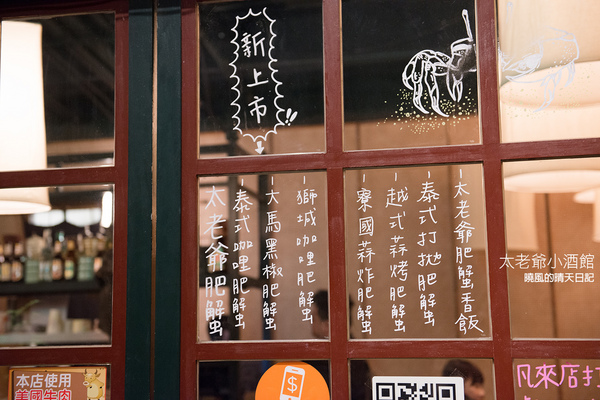 新上市!!
太老爺肥蟹香飯
泰式打拋肥蟹
越式蒜烤肥蟹
寮國蒜炸肥蟹
獅城咖哩肥蟹
大馬黑椒肥蟹
泰式咖哩肥蟹
太老爺肥蟹
太老爺小酒館
曉風的晴天日記
本店使用
美國牛肉
$
凡來店打